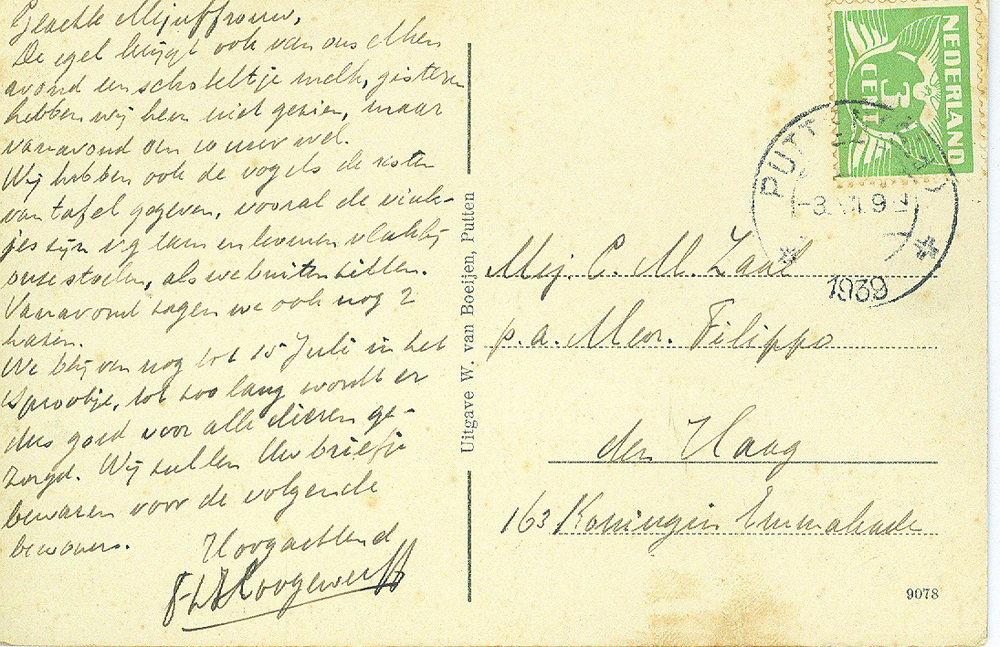 Geachte Mejuffrouw,
De egel krijgt ook van ons elken
avond een schoteltje melk, gisteren
hebben wij hem niet gezien, maar
vanavond om 10 uur wel.
Wij hebben ook de vogels de resten
van tafel gegeven, vooral de vink-
jes zijn erg tam en komen vlakbij
onze stoelen, als we buiten zitten.
Vanavond zagen we ook nog 2
hazen.
We blijven nog tot 15 Juli in het
Sprookje, tot zoo lang wordt er
dus goed voor alle dieren ge-
zorgd. Wij zullen Uw briefje
bewaren voor de volgende
bewoners.
Hoogachtend
Hoogewerff
Uitgave W. van Boeijen, Putten
NEDERLAND
3
CENT
PUTTEN
1939
Mej. C. M. Zaal
p.a. Mevr. Filippo
den Haag
163 Koningin Emmakade
9078